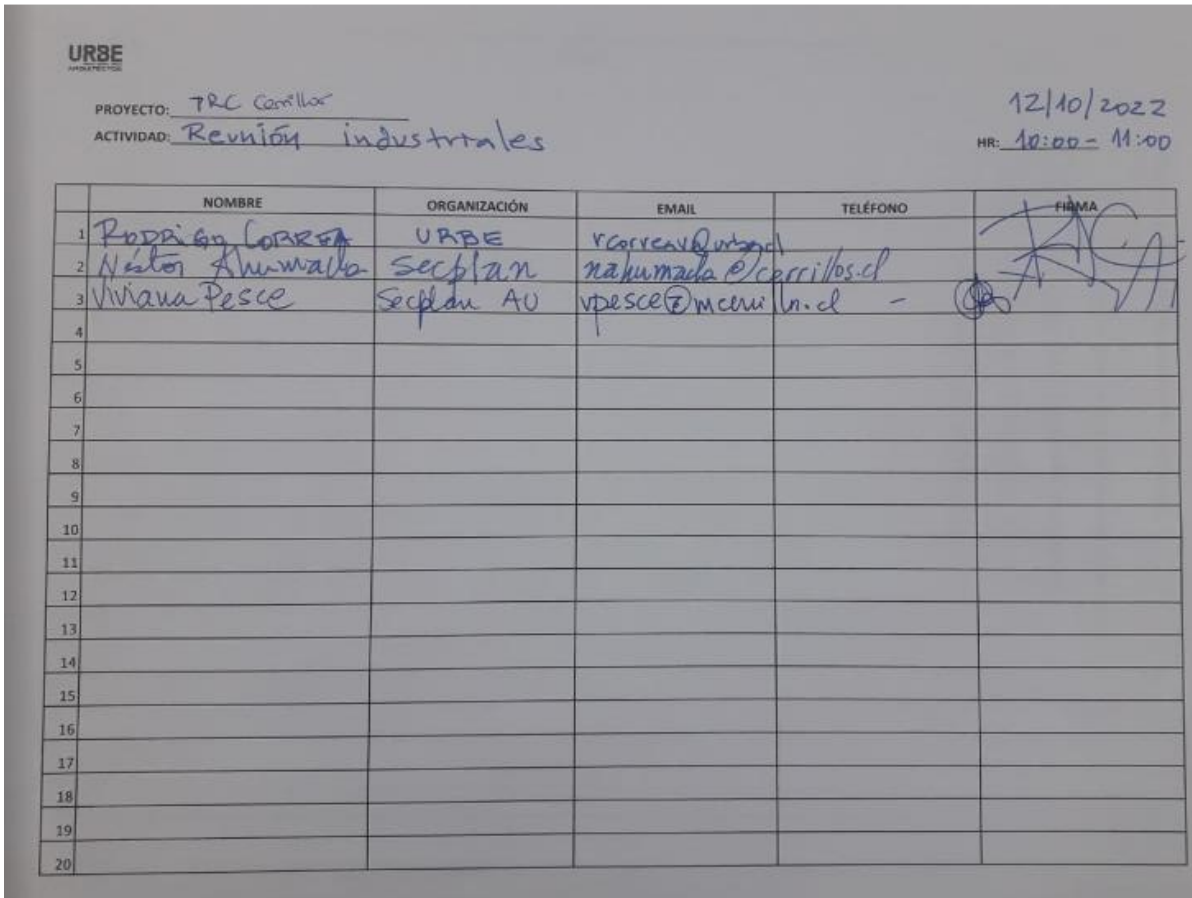 URBE
ARQUITECTOS
PROYECTO: TRC Cerrillos
12/10/2022
ACTIVIDAD: Reunión industriales
HR: 10:00 - 11:00
NOMBRE ORGANIZACIÓN EMAIL TELÉFONO FIRMA
1 RODRIGO CORREA URBE
2 Néstor Ahumada Secplan nahumada@cerrillos.cl
3 Viviana Pesce Secplan AU -
4
5
6
7
8
9
10
11
12
13
14
15
16
17
18
19
20